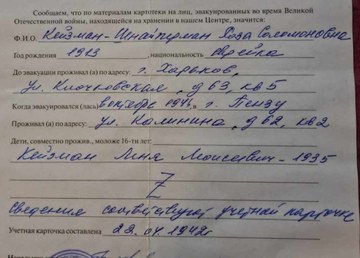 Сообщаем, что по материалам картотеки на лиц, эвакуированных во время Великой
Отечественной войны, находящейся на хранении в нашем Центре, значится:
Ф.И.О. Кейзман-Шнайдерман Роза Соломоновна
Год рождения 1913, национальность еврейка
До эвакуации проживал (а) по адресу г. Харьков,
ул. Клочковская, д 63, кв 5
Когда эвакуировался (лась) в октябре 1941г. г. Пензу
Проживал (а) по адресу: ул. Калинина, д 62, кв 2
Дети, совместно прожив., моложе 16-ти лет:
Кейзман Лиля Моисеевич - 1935
Z
Сведения соответствуют учетной карточке
Учетная карточка составлена 22.01.1942г